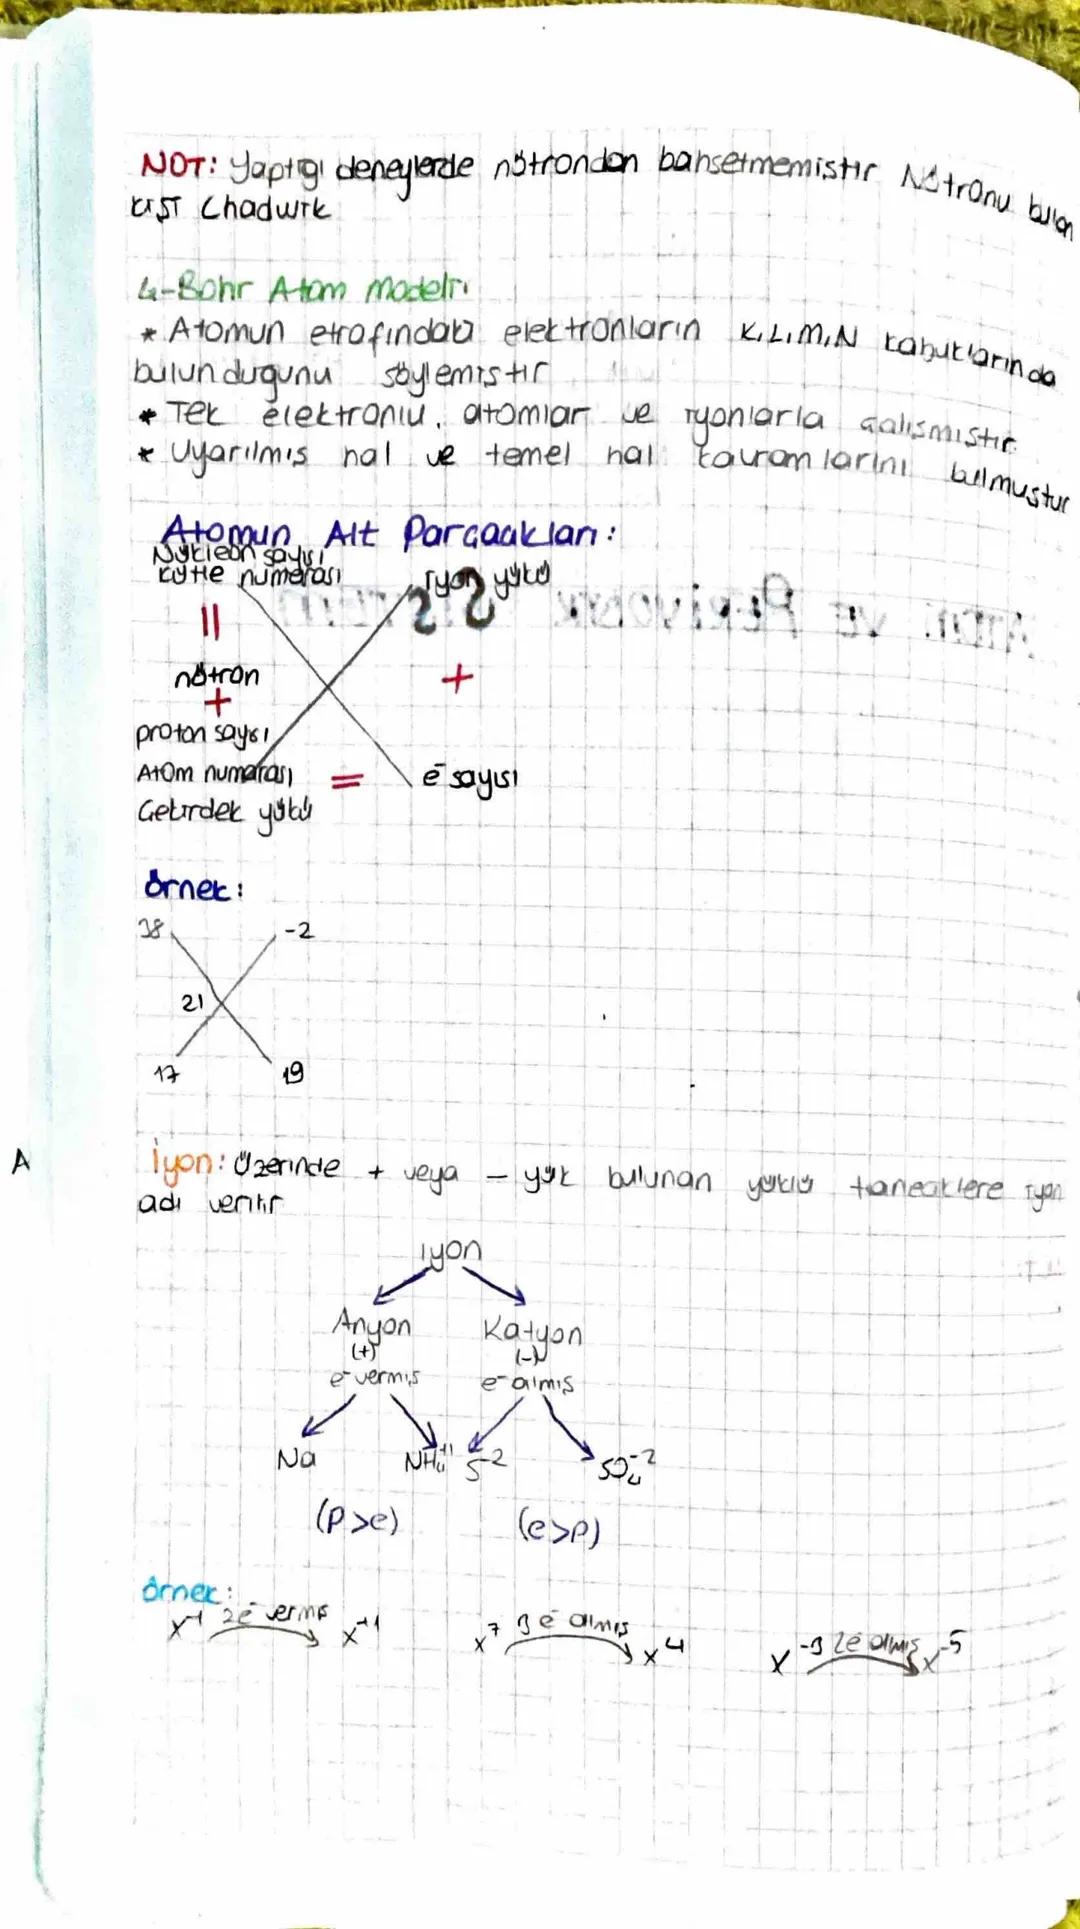 NOT: Yaptıgı deneylerde nötrondan bahsetmemistir Nötronu bulan
kişi Chadwik
4-Bohr Atom Modeli
* Atomun etrafındaki elektronların K,L,M,N kabuklarında
bulunduğunu söylemistir
* Tek elektronlu, atomlar ve iyonlarla çalısmıstır.
* Uyarılmıs hal ve temel hal kavramlarını bulmustur
Atomun Alt Parçacıkları:
Nükleon sayısı
kütle numarası iyon yükü
=
nötron +
+
proton sayısı
Atom numarası = e⁻ sayısı
Çekirdek yükü
örnek:
38 -2
21
17 19
A
İyon: Üzerinde + veya - yük bulunan yüklü taneciklere iyon
adı verilir
iyon
Anyon Katyon
(+) (-)
e⁻ vermiş e⁻ almış
Na NH₄⁺¹ S⁻² SO₄⁻²
(P>e) (e>p)
örnek:
x⁻¹ 2e⁻ vermiş x⁺¹ x⁷ 3e⁻ almış x⁴ x⁻³ 2e⁻ almış x⁻⁵